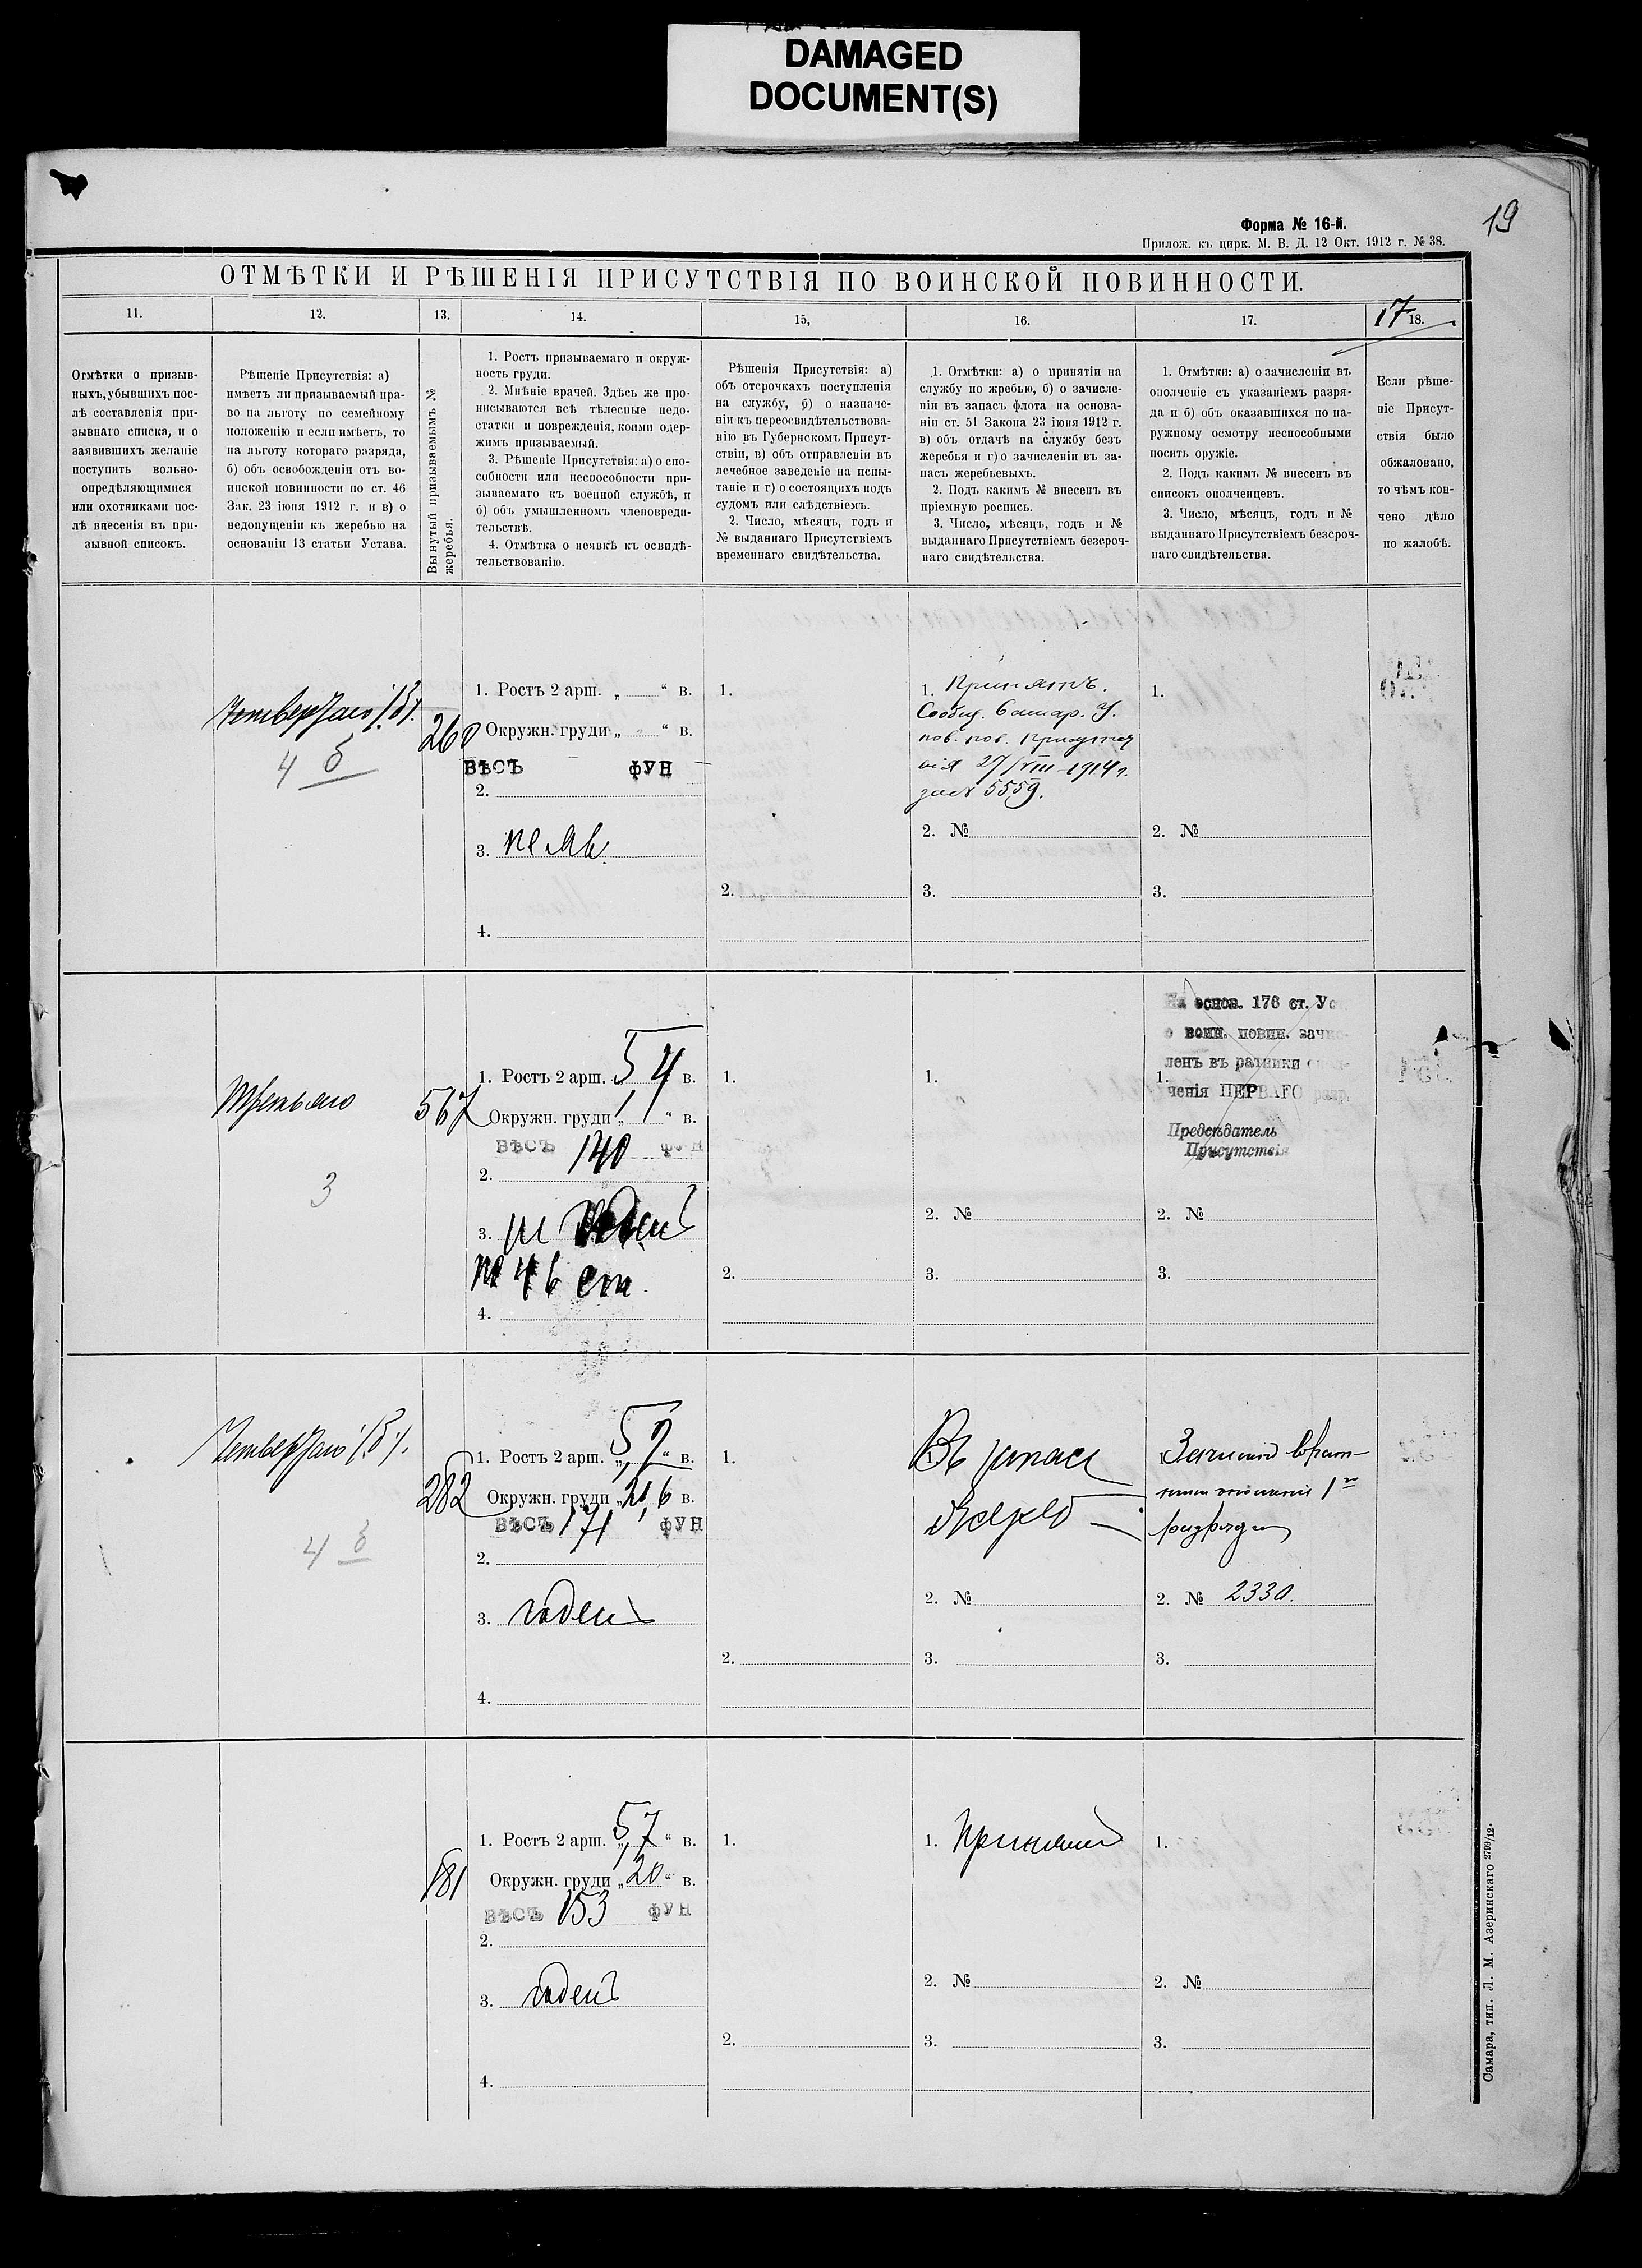 DAMAGED
DOCUMENT(S)
19
Форма № 16-й.
Прилож. къ цирк. М. В. Д. 12 Окт. 1912 г. № 38.
ОТМѢТКИ И РѢШЕНІЯ ПРИСУТСТВІЯ ПО ВОИНСКОЙ ПОВИННОСТИ.
11.
12.
13.
14.
15,
16.
17.
17
18.
Отмѣтки о призыв-
ныхъ, убывшихъ пос-
лѣ составленія при-
зывнаго списка, и о
заявившихъ желаніе
поступить вольно-
опредѣляющимися
или охотниками пос-
лѣ внесенія въ при-
зывной списокъ.
Рѣшеніе Присутствія: а)
имѣетъ ли призываемый пра-
во на льготу по семейному
положенію и если имѣетъ, то
на льготу котораго разряда,
б) объ освобожденіи отъ во-
инской повинности по ст. 46
Зак. 23 іюня 1912 г. и в) о
недопущеніи къ жеребью на
основаніи 13 статьи Устава.
Вынутый призываемымъ №
жеребья.
1. Ростъ призываемаго и окруж-
ность груди.
2. Мнѣніе врачей. Здѣсь же про-
писываются всѣ тѣлесные недо-
статки и поврежденія, коими одер-
жимъ призываемый.
3. Рѣшеніе Присутствія: а) о спо-
собности или неспособности при-
зываемаго къ военной службѣ, и
б) объ умышленномъ членовреди-
тельствѣ.
4. Отмѣтка о неявкѣ къ освидѣ-
тельствованію.
Рѣшенія Присутствія: а)
объ отсрочкахъ поступленія
на службу, б) о назначе-
ніи къ переосвидѣтельствова-
нію въ Губернскомъ Присут-
ствіи, в) объ отправленіи въ
лечебное заведеніе на испы-
таніе и г) о состоящихъ подъ
судомъ или слѣдствіемъ.
2. Число, мѣсяцъ, годъ и
№ выданнаго Присутствіемъ
временнаго свидѣтельства.
1. Отмѣтки: а) о принятіи на
службу по жребью, б) о зачисле-
ніи въ запасъ флота на основа-
ніи ст. 51 Закона 23 іюня 1912 г.
в) объ отдачѣ на службу безъ
жеребья и г) о зачисленіи въ за-
пасъ жеребьевыхъ.
2. Подъ какимъ № внесенъ въ
пріемную роспись.
3. Число, мѣсяцъ, годъ и №
выданнаго Присутствіемъ безсроч-
наго свидѣтельства.
1. Отмѣтки: а) о зачисленіи въ
ополченіе съ указаніемъ разря-
да и б) объ оказавшихся по на-
ружному осмотру неспособными
носить оружіе.
2. Подъ какимъ № внесенъ въ
списокъ ополченцевъ.
3. Число, мѣсяцъ, годъ и №
выданнаго Присутствіемъ безсроч-
наго свидѣтельства.
Если рѣше-
ніе Присут-
ствія было
обжаловано,
то чѣмъ кон-
чено дѣло
по жалобѣ.
Четвертаго (б).
4 б
260
1. Ростъ 2 арш. „ “ в.
Окружн. груди „ “ в.
ВѢСЪ ФУН
2.
3. не яв.
4.
1.
2.
1. Принятъ.
Сообщ. Самар. У.
пов. Присутст
вія 27/VIII-1914 г.
за № 5559.
2. №
3.
1.
2. №
3.
Третьяго
3
567
1. Ростъ 2 арш. 5,4 в.
Окружн. груди „ “ в.
ВѢСЪ 140 ФУН
2.
3.
46 ст.
4.
1.
2.
1.
2. №
3.
На основ. 176 ст. Ус
о воин. повин. зачис
ленъ въ ратники опол-
1.
ченія ПЕРВАГО разр.
Предсѣдатель
Присутствія
2. №
3.
Четвертаго (б).
4 б
282
1. Ростъ 2 арш. 5,2 “ в.
Окружн. груди „21,6 в.
ВѢСЪ 171 ФУН
2.
3. годенъ
4.
1.
2.
1. Въ запас
2. №
3.
1. Зачисленъ в рат-
ники ополченія 1го
разряда
2. № 2330.
3.
181
1. Ростъ 2 арш. 5,7 “ в.
Окружн. груди „20 “ в.
ВѢСЪ 153 ФУН
2.
3. годенъ
4.
1.
2.
1. Принятъ
2. №
3.
1.
2. №
3.
Самара, тип. Л. М. Азеринскаго 2799/12.